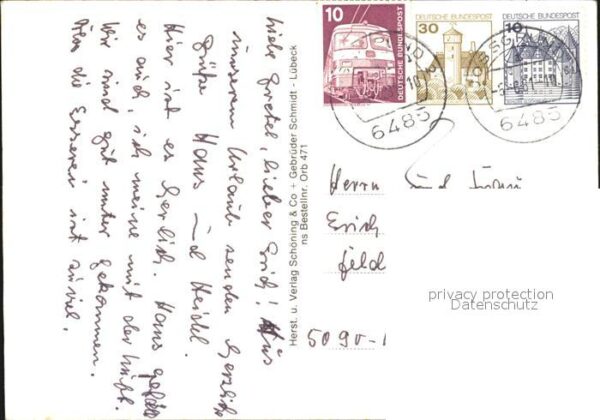 Liebe Gretel, lieber Erich! Aus
unserem Urlaub senden herzliche
Grüße Haus und Heidel.
Hier ist es herlich. Hans gefällt
es auch, ich meine mit der Luft.
Wir sind gut unter gekommen.
Nur die Esserei ist zuviel.
Herst. u. Verlag Schöning & Co + Gebrüder Schmidt - Lübeck
ns Bestellnr. Orb 471
10
DEUTSCHE BUNDESPOST
30
DEUTSCHE BUNDESPOST
10
DEUTSCHE BUNDESPOST
6485
6485
Herrn und Frau
Erich
Feld
5090-
privacy protection
Datenschutz